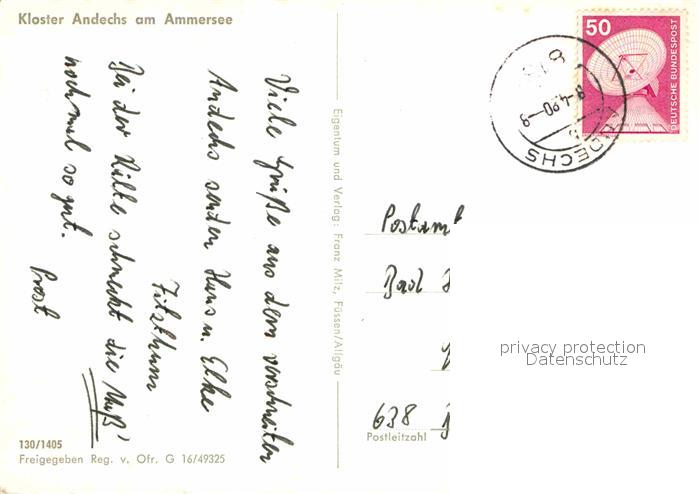 Kloster Andechs am Ammersee
Viele Grüße aus dem verschneiten
Andechs senden Hans u. Elke
Fitzthum
Bei der Kälte schmeckt die Maß
nochmal so gut.
Prost
130/1405
Freigegeben Reg. v. Ofr. G 16/49325
Eigentum und Verlag: Franz Milz, Füssen/Allgäu
50
DEUTSCHE BUNDESPOST
ANDECHS
Postamt
Bad
638
Postleitzahl
privacy protection
Datenschutz